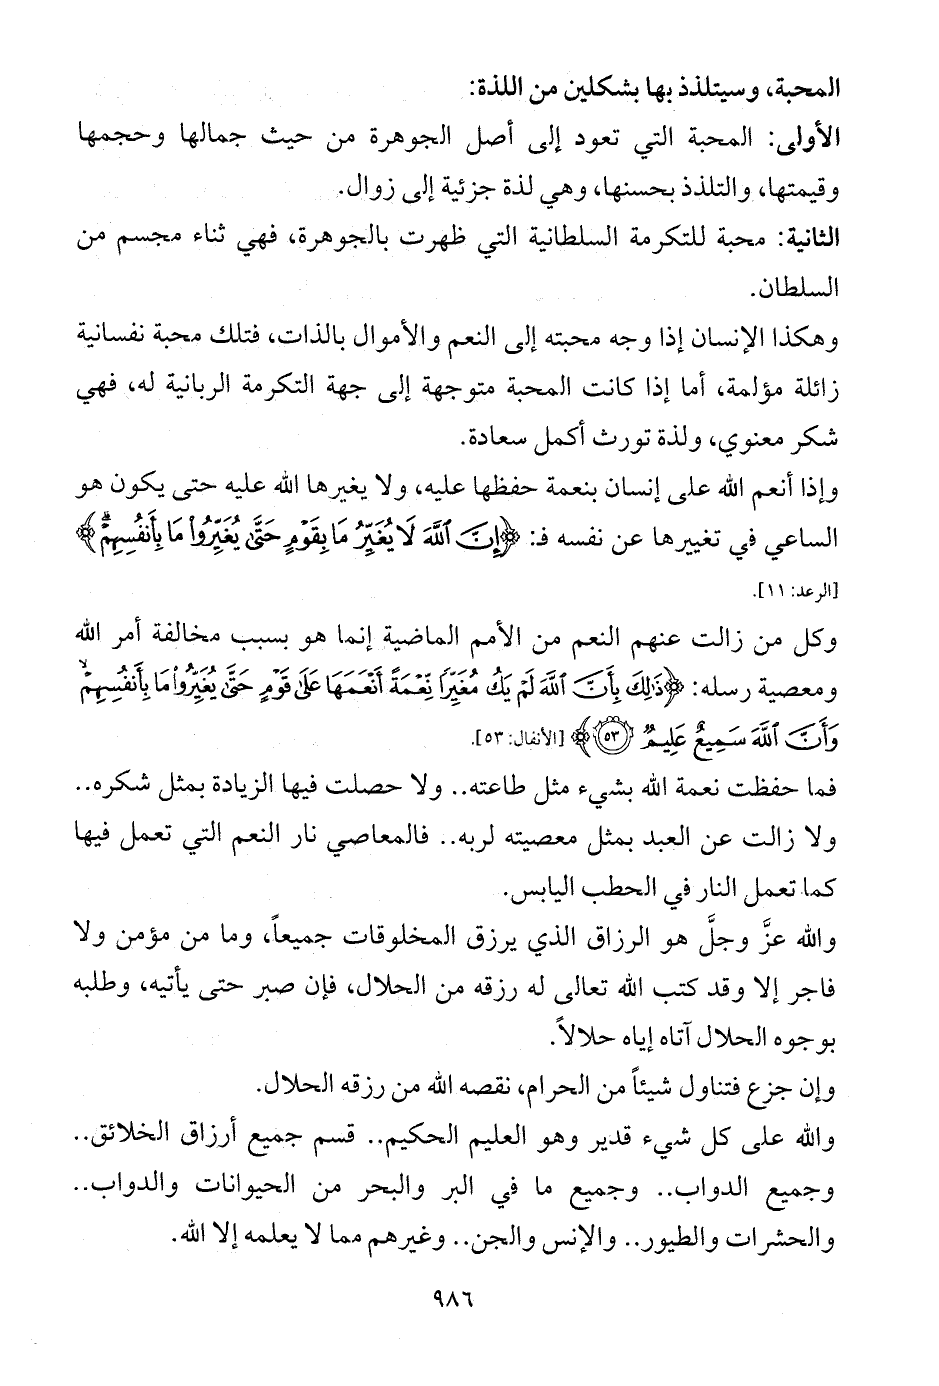 المحبة، وسيتلذذ بها بشكلين من اللذة:
الأولى: المحبة التي تعود إلى أصل الجوهرة من حيث جمالها وحجمها
وقيمتها، والتلذذ بحسنها، وهي لذة جزئية إلى زوال.
الثانية: محبة للتكرمة السلطانية التي ظهرت بالجوهرة، فهي ثناء مجسم من
السلطان.
وهكذا الإنسان إذا وجه محبته إلى النعم والأموال بالذات، فتلك محبة نفسانية
زائلة مؤلمة، أما إذا كانت المحبة متوجهة إلى جهة التكرمة الربانية له، فهي
شكر معنوي، ولذة تورث أكمل سعادة.
وإذا أنعم الله على إنسان بنعمة حفظها عليه، ولا يغيرها الله عليه حتى يكون هو
الساعي في تغييرها عن نفسه فـ: ﴿إِنَّ ٱللَّهَ لَا يُغَيِّرُ مَا بِقَوْمٍ حَتَّىٰ يُغَيِّرُوا۟ مَا بِأَنفُسِهِمْ ۗ﴾
[الرعد: ١١].
وكل من زالت عنهم النعم من الأمم الماضية إنما هو بسبب مخالفة أمر الله
ومعصية رسله: ﴿ذَٰلِكَ بِأَنَّ ٱللَّهَ لَمْ يَكُ مُغَيِّرًا نِّعْمَةً أَنْعَمَهَا عَلَىٰ قَوْمٍ حَتَّىٰ يُغَيِّرُوا۟ مَا بِأَنفُسِهِمْ ۙ
وَأَنَّ ٱللَّهَ سَمِيعٌ عَلِيمٌ ٥٣﴾ [الأنفال: ٥٣].
فما حفظت نعمة الله بشيء مثل طاعته.. ولا حصلت فيها الزيادة بمثل شكره..
ولا زالت عن العبد بمثل معصيته لربه.. فالمعاصي نار النعم التي تعمل فيها
كما تعمل النار في الحطب اليابس.
والله عزَّ وجلَّ هو الرزاق الذي يرزق المخلوقات جميعاً، وما من مؤمن ولا
فاجر إلا وقد كتب الله تعالى له رزقه من الحلال، فإن صبر حتى يأتيه، وطلبه
بوجوه الحلال آتاه إياه حلالاً.
وإن جزع فتناول شيئاً من الحرام، نقصه الله من رزقه الحلال.
والله على كل شيء قدير وهو العليم الحكيم.. قسم جميع أرزاق الخلائق..
وجميع الدواب.. وجميع ما في البر والبحر من الحيوانات والدواب..
والحشرات والطيور.. والإنس والجن.. وغيرهم مما لا يعلمه إلا الله.
٩٨٦